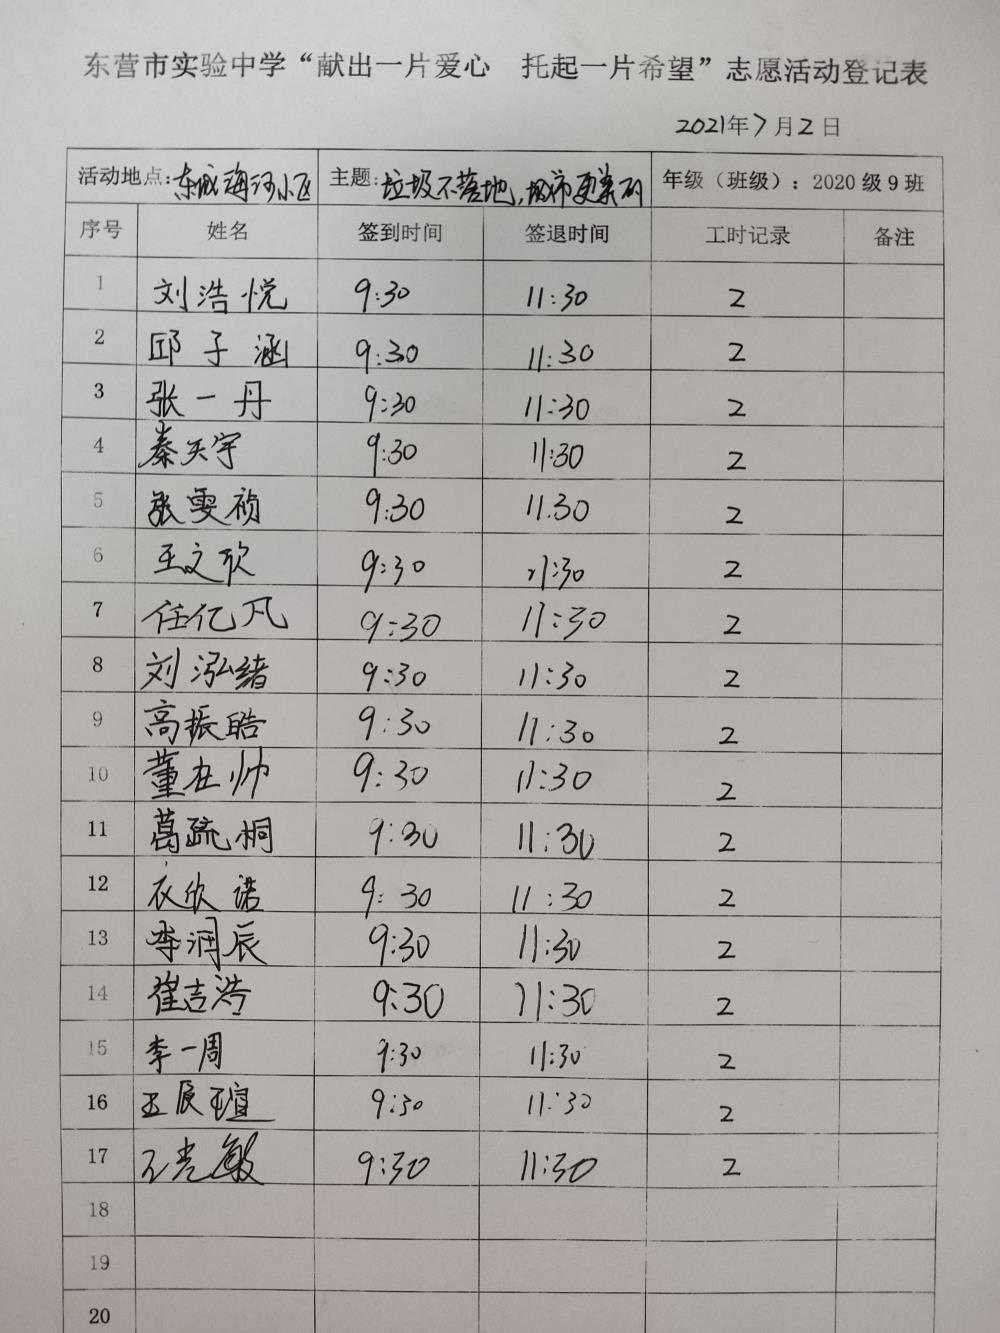 东营市实验中学“献出一片爱心 托起一片希望”志愿活动登记表
2021年7月2日
活动地点:东城海河小区 主题:垃圾不落地,城市更美丽 年级（班级）：2020级9班
序号 姓名 签到时间 签退时间 工时记录 备注
1 刘浩悦 9:30 11:30 2
2 邱子涵 9:30 11:30 2
3 张一丹 9:30 11:30 2
4 秦天宇 9:30 11:30 2
5 张雯祯 9:30 11.30 2
6 王文欣 9:30 11:30 2
7 任亿凡 9:30 11:30 2
8 刘泓绪 9:30 11:30 2
9 高振皓 9:30 11:30 2
10 董在帅 9:30 11:30 2
11 葛疏桐 9:30 11:30 2
12 衣欣诺 9:30 11:30 2
13 李润辰 9:30 11:30 2
14 崔吉浩 9:30 11:30 2
15 李一周 9:30 11:30 2
16 王辰瑄 9:30 11:30 2
17 9:30 11:30 2
18
19
20